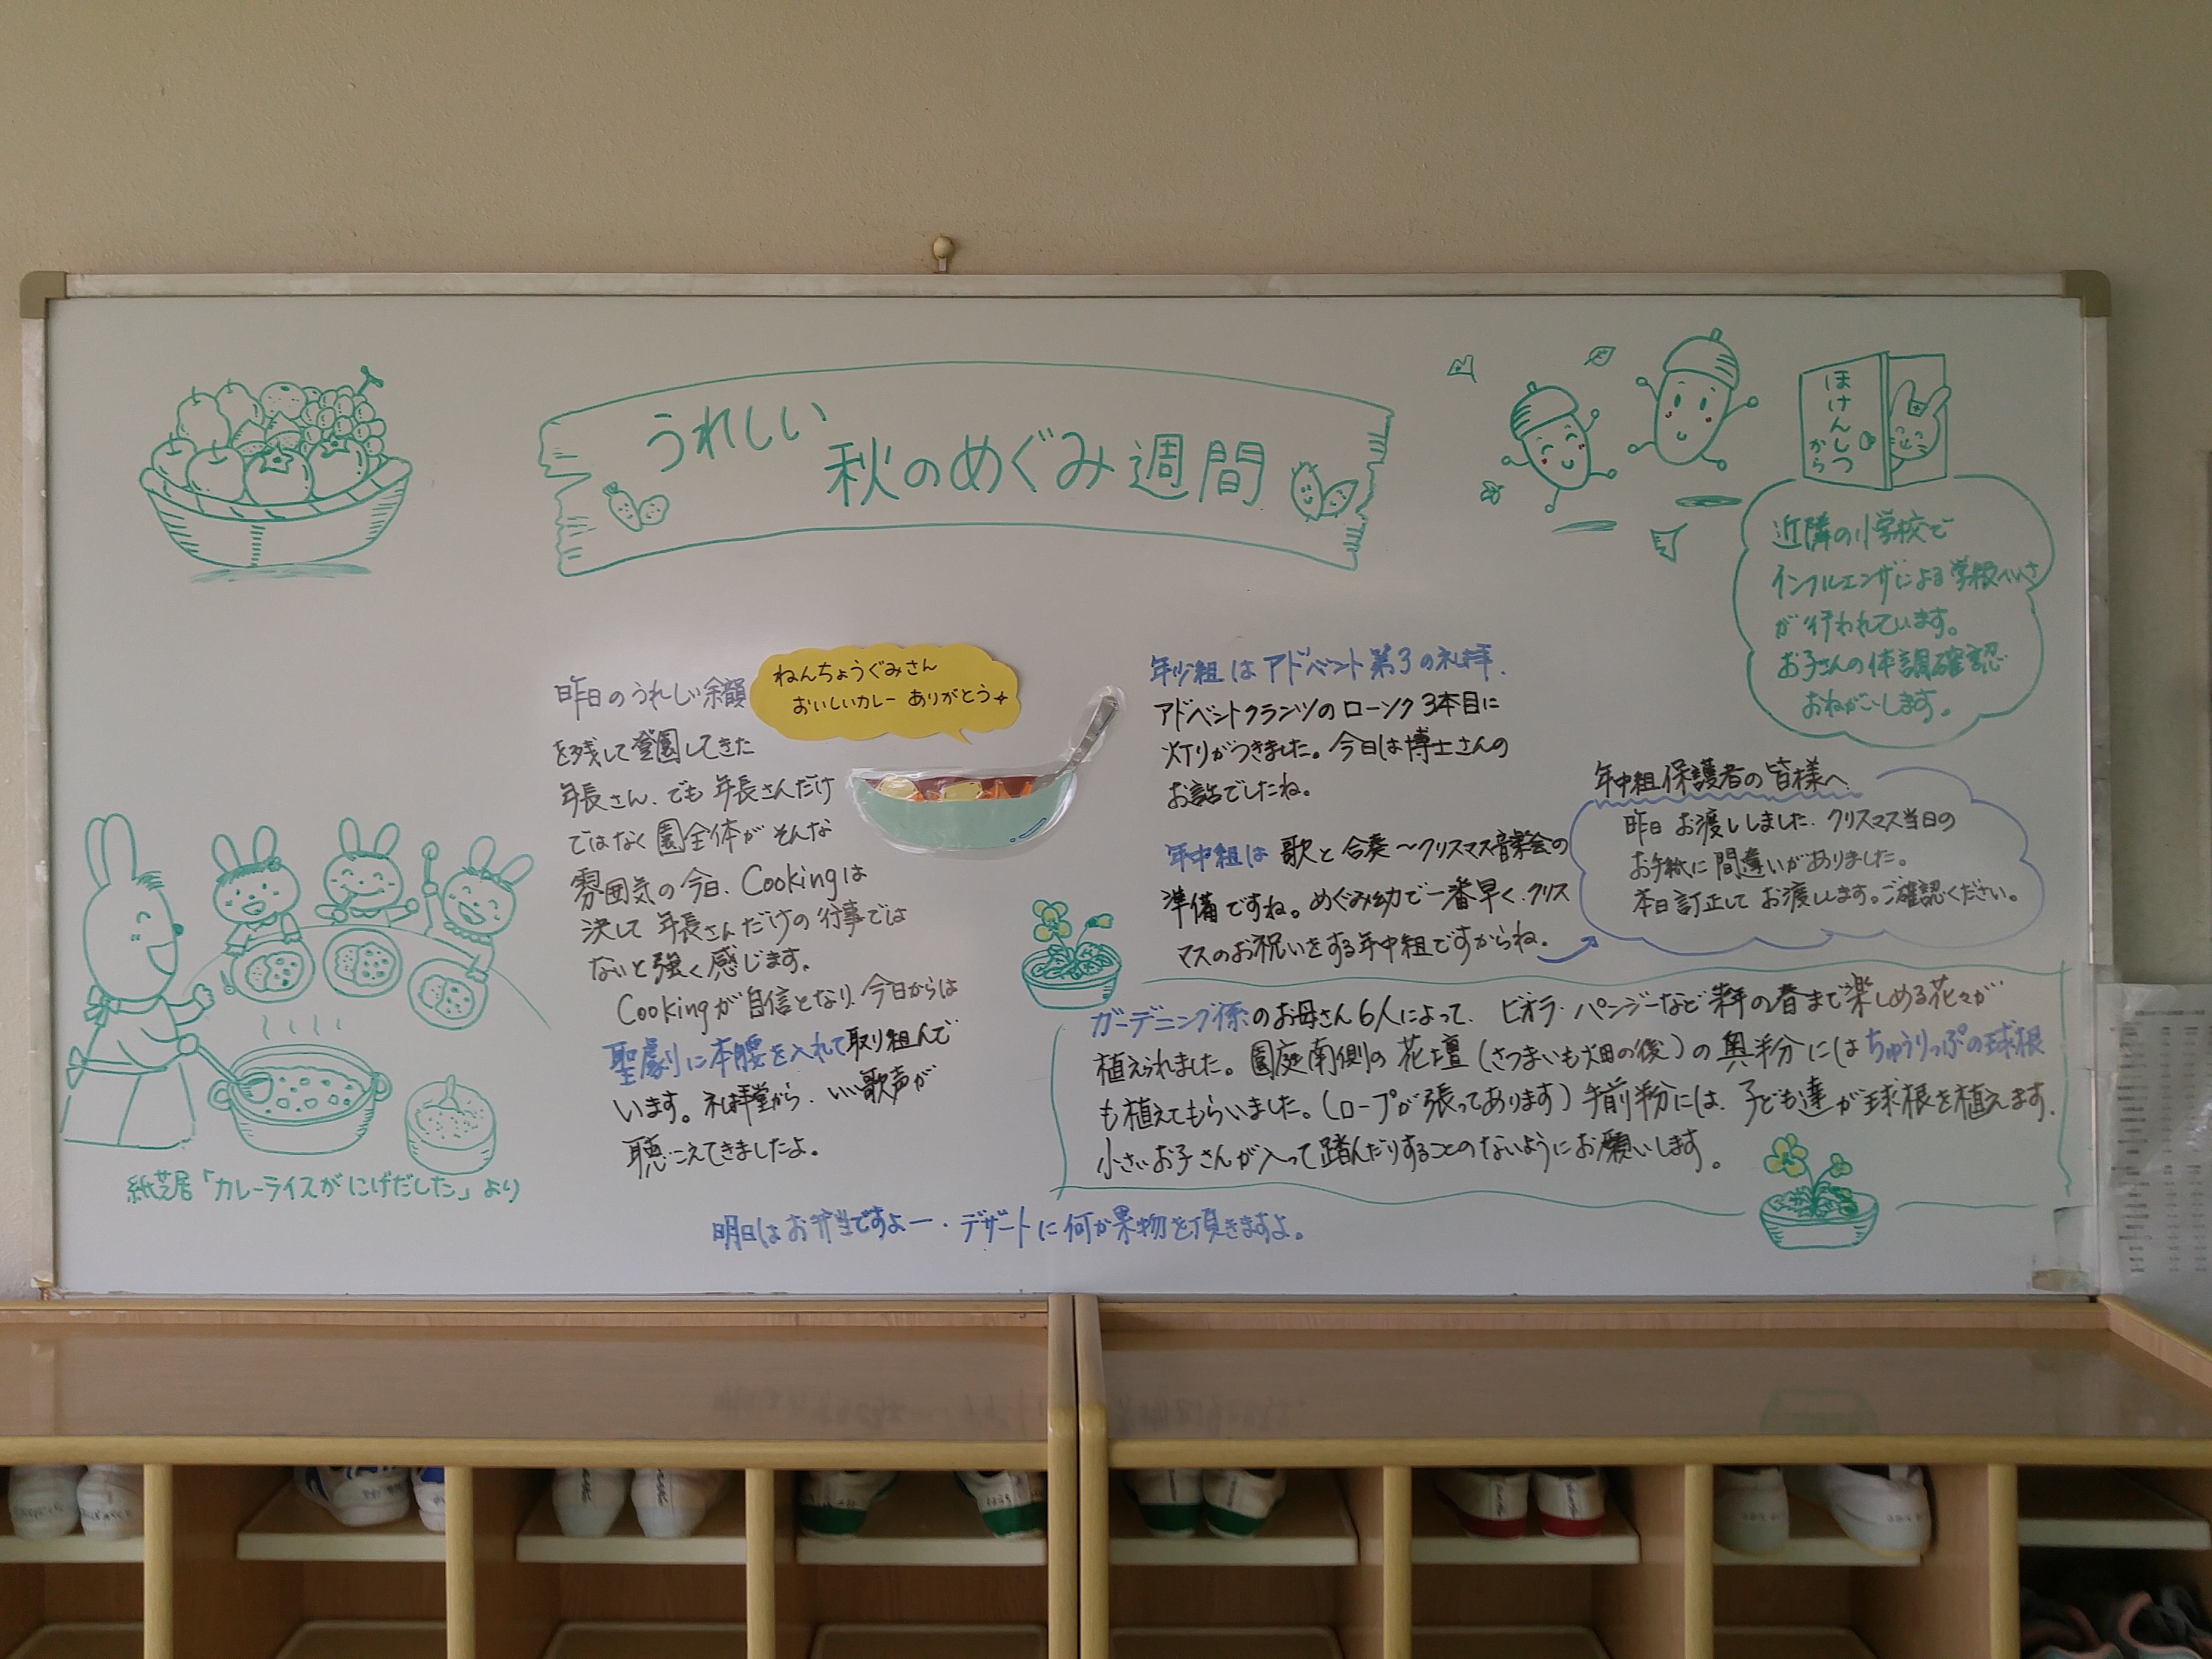 うれしい
秋のめぐみ週間
ほけんしつ
から
近隣の小学校で
インフルエンザによる学級へいさ
が行われています。
お子さんの体調確認
おねがいします。
昨日のうれしい余韻
を残して登園してきた
年長さん、でも年長さんだけ
ではなく園全体がそんな
雰囲気の今日、Cookingは
決して年長さんだけの行事では
ないと強く感じます。
Cookingが自信となり、今日からは
聖劇に本腰を入れて取り組んで
います。礼拝堂から、いい歌声が
聴こえてきましたよ。
ねんちょうぐみさん
おいしいカレー ありがとう
年少組はアドベント第3の礼拝.
アドベントクランツのローソク3本目に
灯りがつきました。今日は博士さんの
お話でしたね。
年中組は 歌と合奏〜クリスマス音楽会の
準備ですね。めぐみ幼で一番早く、クリス
マスのお祝いをする年中組ですからね。
年中組保護者の皆様へ
昨日お渡ししました、クリスマス当日の
お手紙に間違いがありました。
本日訂正してお渡しします。ご確認ください。
ガーデニング係のお母さん6人によって、ビオラ・パンジーなど来年の春まで楽しめる花々が
植えられました。園庭南側の花壇(さつまいも畑の後)の奥半分にはちゅうりっぷの球根
も植えてもらいました。(ロープが張ってあります)手前半分には、子ども達が球根を植えます.
小さいお子さんが入って踏んだりすることのないようにお願いします。
紙芝居「カレーライスがにげだした」より
明日はお弁当ですよー・デザートに何か果物を頂きますよ。